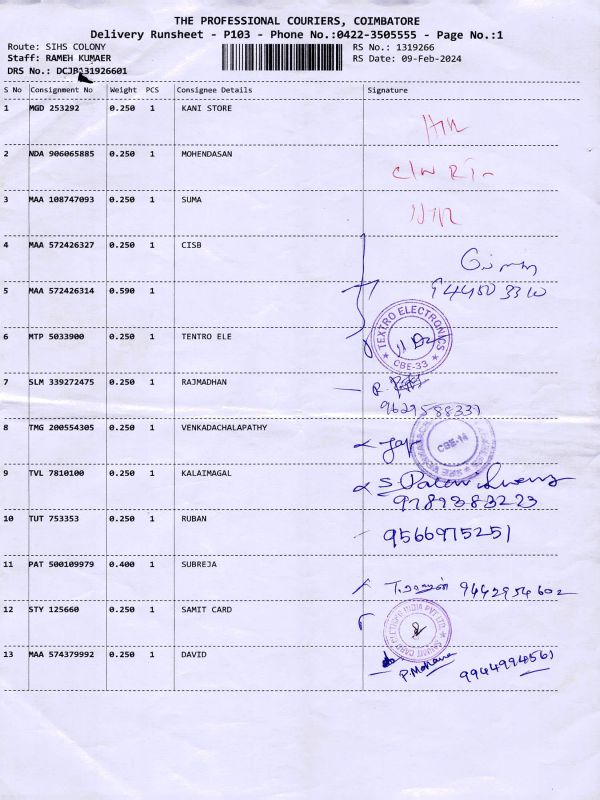 THE PROFESSIONAL COURIERS, COIMBATORE
Delivery Runsheet - P103 - Phone No.:0422-3505555 - Page No.:1
Route: SIHS COLONY RS No.: 1319266
Staff: RAMEH KUMAER RS Date: 09-Feb-2024
DRS No.: DCJB131926601
S No Consignment No Weight PCS Consignee Details Signature
1 MGD 253292 0.250 1 KANI STORE
2 NDA 906065885 0.250 1 MOHENDASAN
3 MAA 108747093 0.250 1 SUMA
4 MAA 572426327 0.250 1 CISB
5 MAA 572426314 0.590 1
6 MTP 5033900 0.250 1 TENTRO ELE
TEXTRO ELECTRONICS
CBE-33
7 SLM 339272475 0.250 1 RAJMADHAN
8 TMG 200554305 0.250 1 VENKADACHALAPATHY
CBE-14
9 TVL 7810100 0.250 1 KALAIMAGAL
9789383223
10 TUT 753353 0.250 1 RUBAN 9566975251
11 PAT 500109979 0.400 1 SUBREJA 9442954602
12 STY 125660 0.250 1 SAMIT CARD
13 MAA 574379992 0.250 1 DAVID
P. Mohana 9944994561